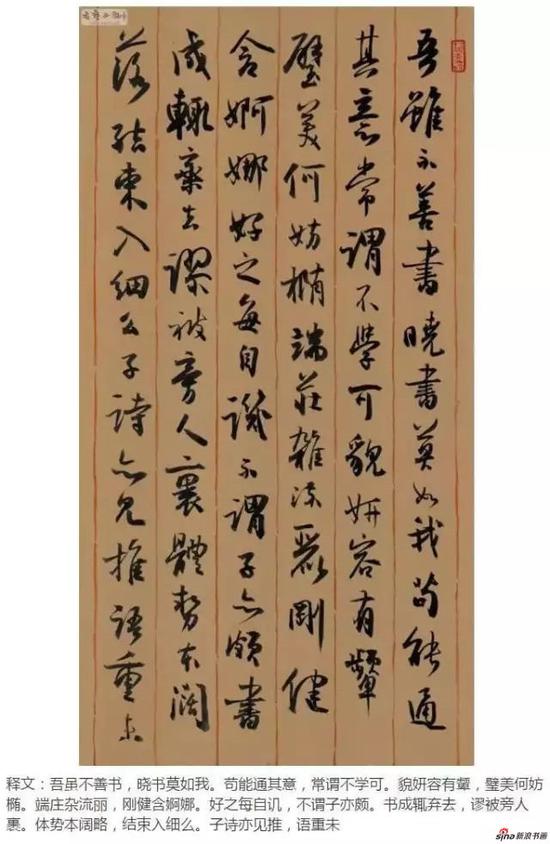 吾雖不善書曉書莫如我苟能通
其意常謂不學可貌妍容有顰
璧美何妨橢端莊雜流麗剛健
含婀娜好之每自譏不謂子亦頗書
成輒棄去謬被旁人裹體勢本闊
落結束入細么子詩亦見推語重未
释文：吾虽不善书，晓书莫如我。苟能通其意，常谓不学可。貌妍容有颦，璧美何妨
椭。端庄杂流丽，刚健含婀娜。好之每自讥，不谓子亦颇。书成辄弃去，谬被旁人
裹。体势本阔略，结束入细么。子诗亦见推，语重未
sina新浪书画